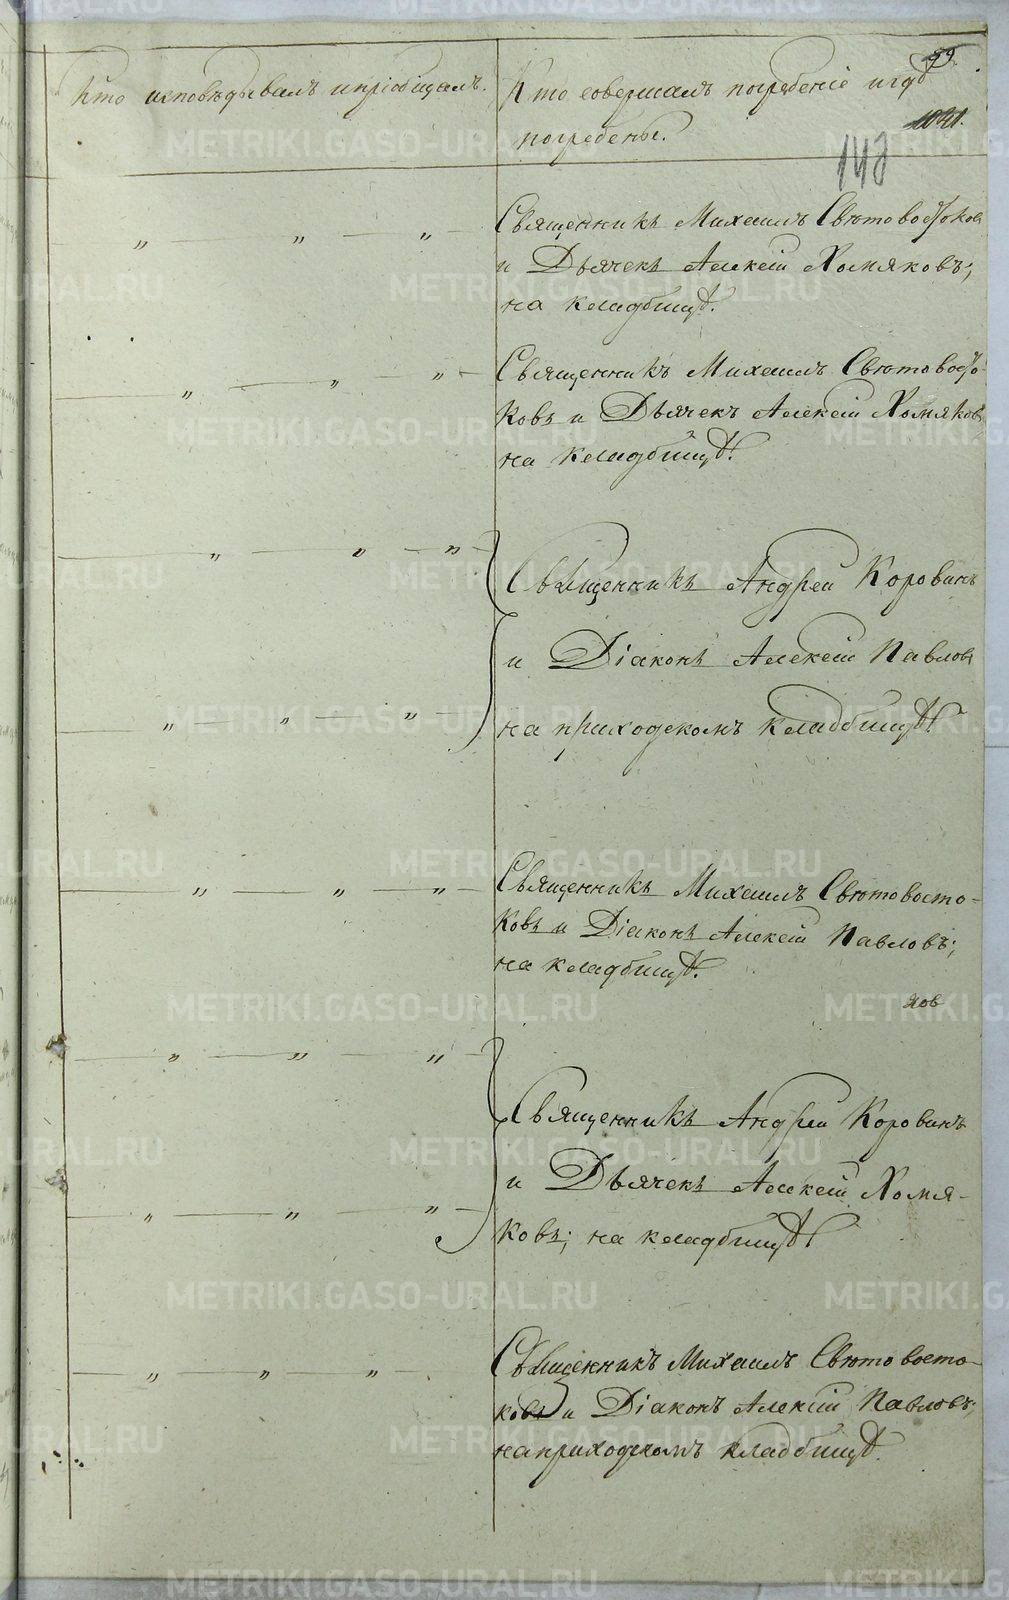 99.
1041.
148
Кто исповѣдывалъ и пріобщалъ.
Кто совершалъ погребеніе и гдѣ
погребены.
„ „ „ Священникъ Михаилъ Святовостоковъ
и Дьячекъ Алексій Хомяковъ;
на кладбищѣ.
„ „ „ Священникъ Михаилъ Святовосто-
ковъ и Дьячекъ Алексій Хомяковъ
на кладбищѣ.
„ „ „
Священникъ Андрей Коровинъ
и Діаконъ Алексій Павловъ
„ „ „
на приходскомъ кладбищѣ.
„ „ „ Священникъ Михаилъ Святовосто-
ковъ и Діаконъ Алексій Павловъ;
на кладбищѣ.
„ „ „
Священникъ Андрей Коровинъ
и Дьячекъ Алексій Хомя-
„ „ „
ковъ; на кладбищѣ
„ „ „ Священникъ Михаилъ Святовосто-
ковъ и Діаконъ Алексій Павловъ;
на приходскомъ кладбищѣ.
METRIKI.GASO-URAL.RU